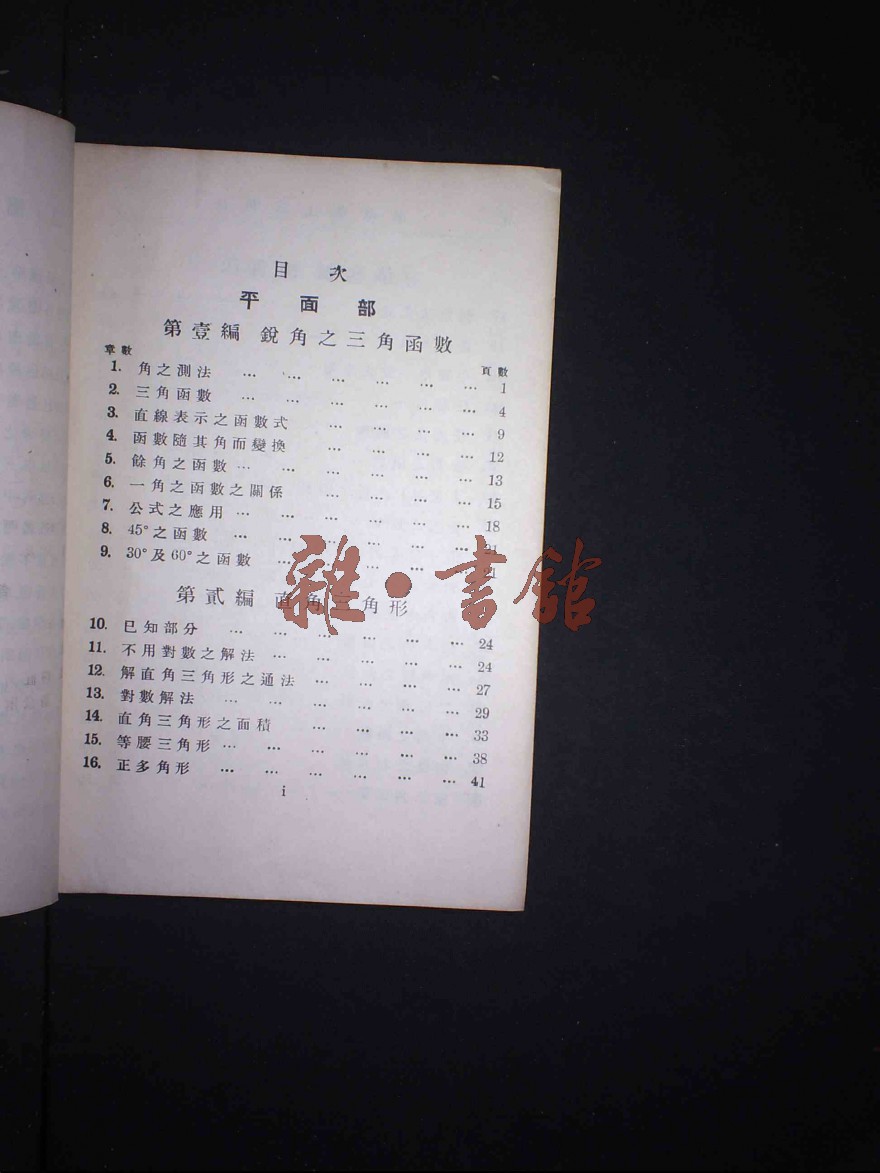 目 次
平 面 部
第壹編 銳角之三角函數
章數 頁數
1. 角之測法 … … … … … … 1
2. 三角函數 … … … … … … 4
3. 直線表示之函數式 … … … … 9
4. 函數隨其角而變換 … … … … 12
5. 餘角之函數 … … … … … … 13
6. 一角之函數之關係 … … … … 15
7. 公式之應用 … … … … … … 18
8. 45°之函數 … … … … … … 21
9. 30°及60°之函數 … … … … …
第貳編 直角三角形
10. 已知部分 … … … … … … 24
11. 不用對數之解法 … … … … … 24
12. 解直角三角形之通法 … … … … 27
13. 對數解法 … … … … … … 29
14. 直角三角形之面積 … … … … 33
15. 等腰三角形 … … … … … … 38
16. 正多角形 … … … … … … 41
i
雜·書館